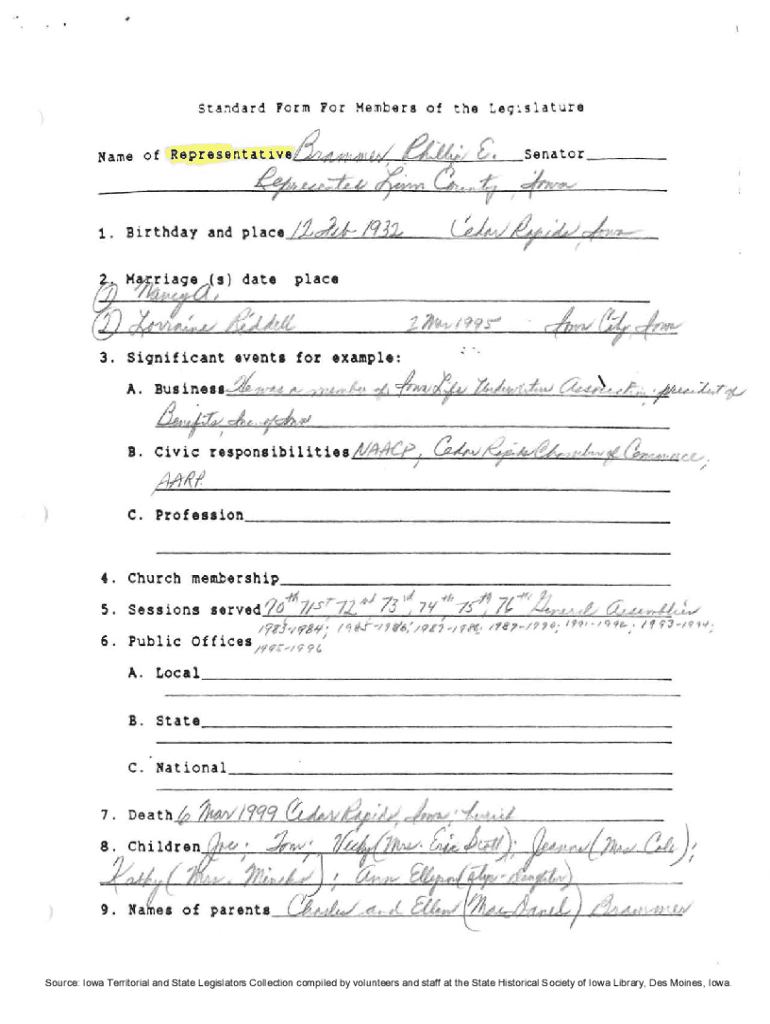 Standard Form For Members of the Legislature
Name of Representative Brammer, Phillip E. Senator
Represented Linn County, Iowa
1. Birthday and place 12 Feb 1932 Cedar Rapids, Iowa
2. Marriage (s) date place
(1) Nancy A.
(2) Lorraine Riddell 2 Mar 1995 Iowa City, Iowa
3. Significant events for example:
A. Business He was a member of Iowa Life Underwriters Association; president of
Benefits, Inc. of Iowa
B. Civic responsibilities NAACP, Cedar Rapids Chamber of Commerce,
AARP
C. Profession
4. Church membership
5. Sessions served 70th 71st 72nd 73rd, 74th, 75th, 76th General Assemblies
1983-1984; 1985-1986; 1987-1988; 1989-1990; 1991-1992; 1993-1994;
6. Public Offices 1995-1996
A. Local
B. State
C. National
7. Death 6 Mar 1999 Cedar Rapids, Iowa; buried
8. Children Joe; Tom; Vicky (Mrs. Eric Scott); Jeanne (Mrs. Cole);
Kathy (Mrs. ); Ann (step-daughter)
9. Names of parents Charles and Ellen (MacDaniel) Brammer
Source: Iowa Territorial and State Legislators Collection compiled by volunteers and staff at the State Historical Society of Iowa Library, Des Moines, Iowa.